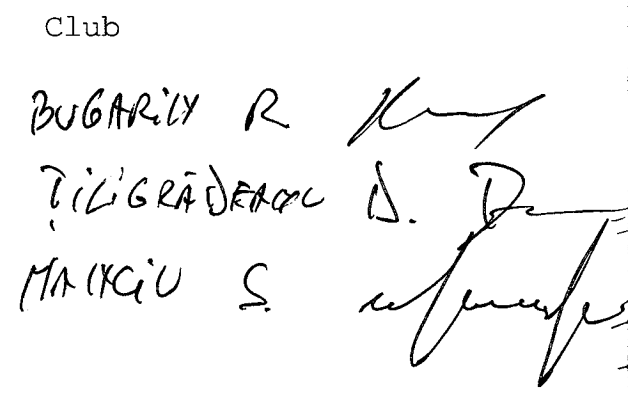 Club
BUGARiN R
ȚiLiGRĂDEANU D.
MANCiU S.